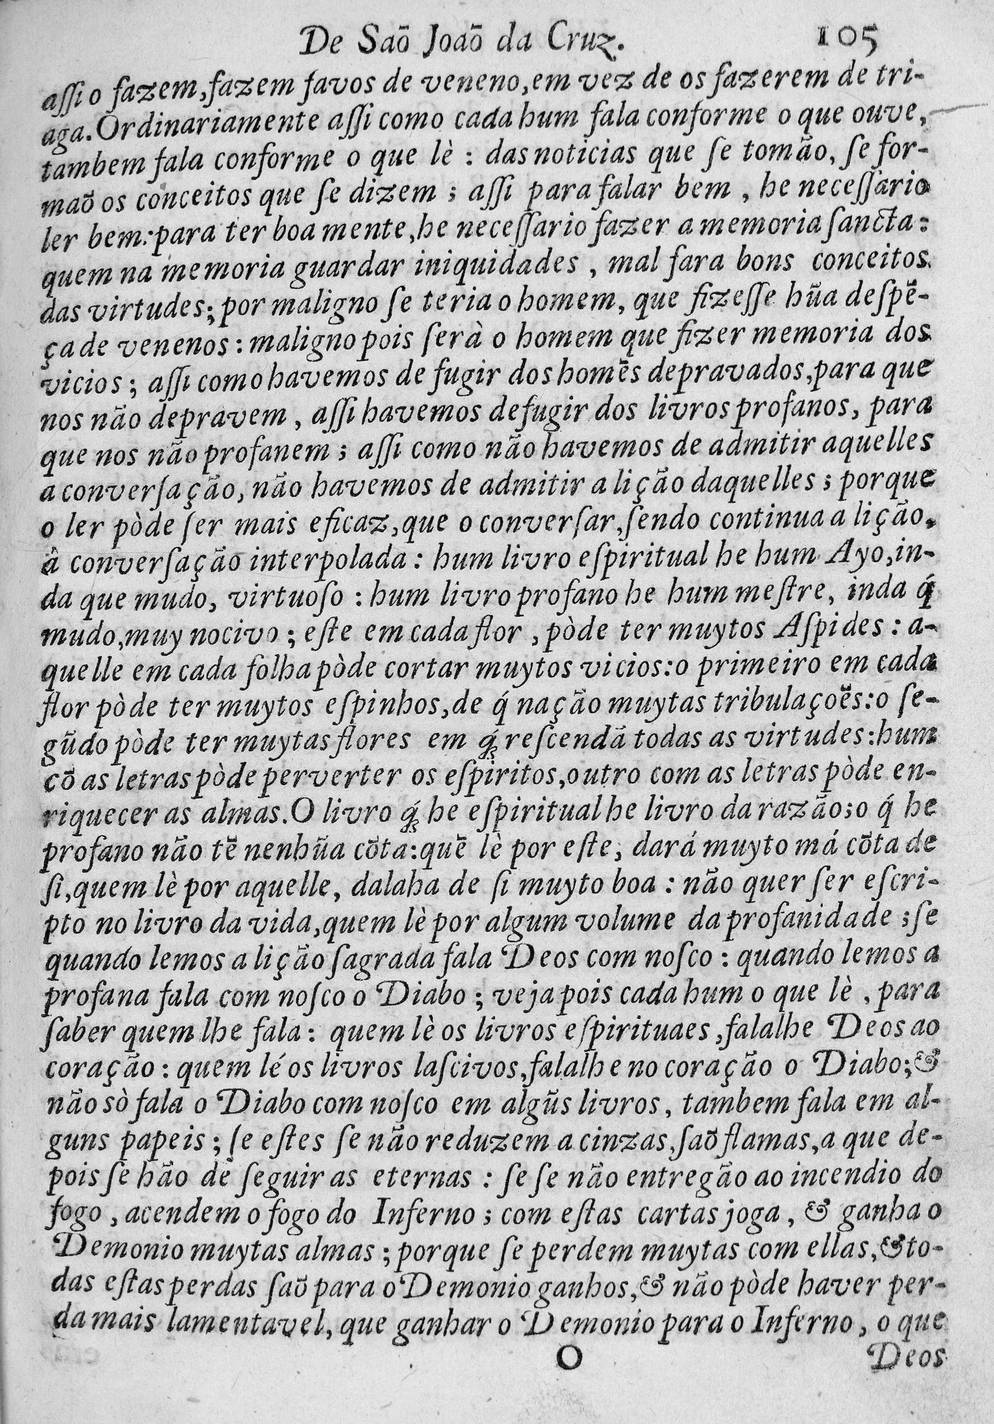 De Saõ Joaõ da Cruz. 105
aſſi o fazem, fazem favos de veneno, em vez de os fazerem de tri-
aga. Ordinariamente aſſi como cada hum fala conforme o que ouve,
tambem fala conforme o que lè : das noticias que ſe tomão, ſe for-
maõ os conceitos que ſe dizem ; aſſi para falar bem , he neceſſario
ler bem: para ter boa mente, he neceſſario fazer a memoria ſancta:
quem na memoria guardar iniquidades , mal fara bons conceitos
das virtudes; por maligno ſe teria o homem, que fizeſſe hũa deſpẽ-
ça de venenos : maligno pois ſerà o homem que fizer memoria dos
vicios ; aſſi como havemos de fugir dos homẽs depravados, para que
nos não depravem , aſſi havemos de fugir dos livros profanos, para
que nos não profanem ; aſſi como não havemos de admitir aquelles
a converſação, não havemos de admitir a lição daquelles ; porque
o ler pòde ſer mais eficaz, que o converſar, ſendo continua a lição,
â converſação interpolada : hum livro eſpiritual he hum Ayo, in-
da que mudo, virtuoſo : hum livro profano he hum meſtre, inda q́
mudo, muy nocivo ; eſte em cada flor , pòde ter muytos Aſpides : a-
quelle em cada folha pòde cortar muytos vicios: o primeiro em cada
flor pòde ter muytos eſpinhos, de q́ nação muytas tribulaçoẽs: o ſe-
gũdo pòde ter muytas flores em q́ reſcendã todas as virtudes: hum
cõ as letras pòde perverter os eſpiritos, outro com as letras pòde en-
riquecer as almas. O livro q́ he eſpiritual he livro da razão; o q́ he
profano não tẽ nenhũa cõta: quẽ lè por eſte, dará muyto má cõta de
ſi, quem lè por aquelle, dalaha de ſi muyto boa : não quer ſer eſcri-
pto no livro da vida, quem lè por algum volume da profanidade ; ſe
quando lemos a lição ſagrada fala Deos com noſco : quando lemos a
profana fala com noſco o Diabo ; veja pois cada hum o que lè , para
ſaber quem lhe fala : quem lè os livros eſpirituaes , falalhe Deos ao
coração : quem lé os livros laſcivos, falalhe no coração o Diabo; &
não sò fala o Diabo com noſco em algũs livros , tambem fala em al-
guns papeis ; ſe eſtes ſe não reduzem a cinzas, ſaõ flamas, a que de-
pois ſe hão de ſeguir as eternas : ſe ſe não entregão ao incendio do
fogo , acendem o fogo do Inferno ; com eſtas cartas joga , & ganha o
Demonio muytas almas ; porque ſe perdem muytas com ellas, & to-
das eſtas perdas ſaõ para o Demonio ganhos, & não pòde haver per-
da mais lamentavel, que ganhar o Demonio para o Inferno, o que
O Deos